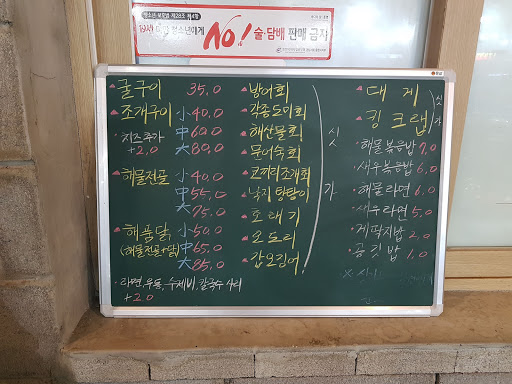 청소년 보호법 제28조 제4항
19세 미만 청소년에게 NO! 술·담배 판매 금지
굴구이 35.0
조개구이 小 40.0
中 60.0
·치즈추가 +2.0
大 80.0
해물전골 小 40.0
中 55.0
大 75.0
해품닭 小 50.0
(해물전골+닭) 中 65.0
大 85.0
·라면, 우동, 수제비, 칼국수 사리
+2.0
방어회
각종도미회
해산물회
무어숙회
코끼리조개회
낙지탕탕이
호래기
오도리
갑오징어
싯가
대게
킹크랩
싯가
·해물볶음밥 7.0
·새우볶음밥 6.0
·해물라면 6.0
·새우라면 5.0
·게딱지밥 2.0
·공깃밥 1.0